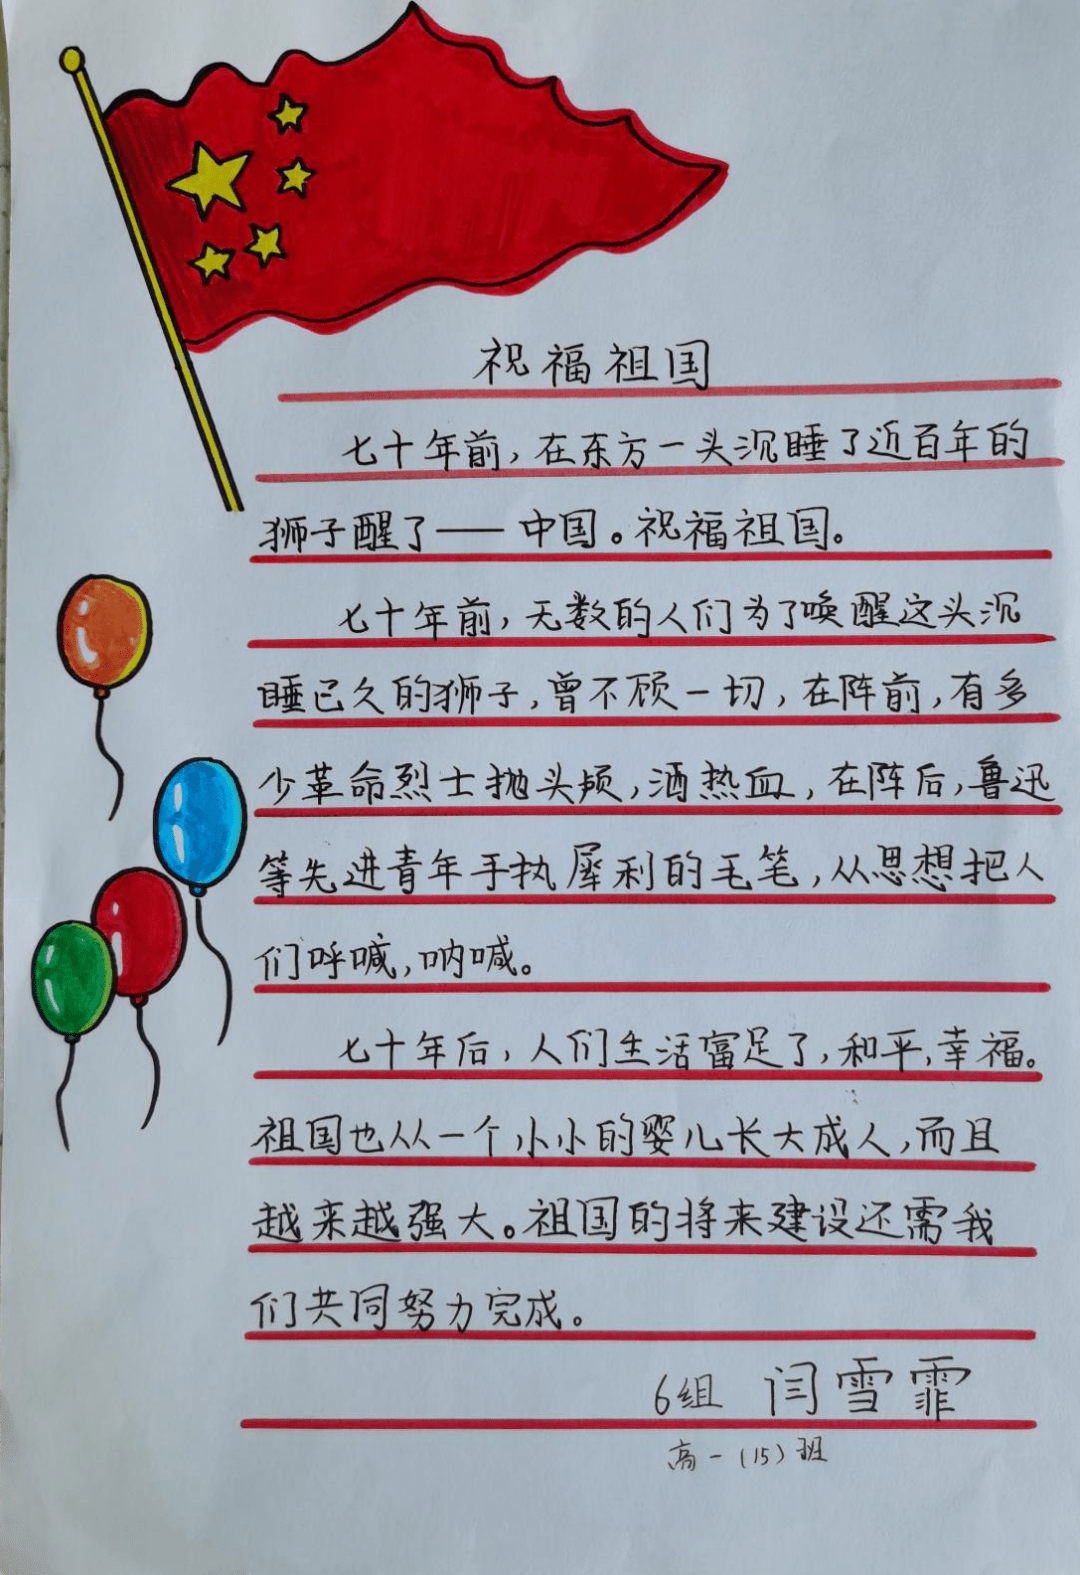 祝福祖国
七十年前,在东方一头沉睡了近百年的
狮子醒了——中国。祝福祖国。
七十年前,无数的人们为了唤醒这头沉
睡已久的狮子,曾不顾一切,在阵前,有多
少革命烈士抛头颅,洒热血,在阵后,鲁迅
等先进青年手执犀利的毛笔,从思想把人
们呼喊,呐喊。
七十年后,人们生活富足了,和平,幸福。
祖国也从一个小小的婴儿长大成人,而且
越来越强大。祖国的将来建设还需我
们共同努力完成。
6组 闫雪霏
高一(15)班